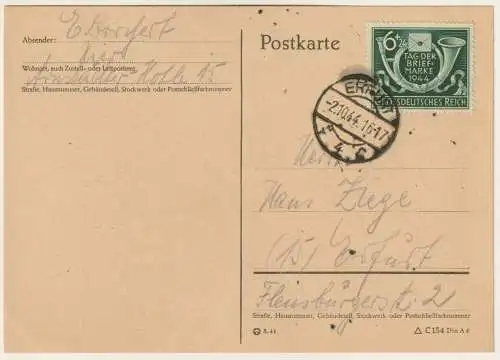 Absender:
Wohnort, auch Zustell- oder Leitpostamt
15
Straße, Hausnummer, Gebäudeteil, Stockwerk oder Postschließfachnummer
Postkarte
6+24
TAG DER
BRIEF-
MARKE
1944
GROSSDEUTSCHES REICH
ERFURT
-2.10.44.16-17
Herrn
Hans Ziege
(15) Erfurt
Flensburgerstr. 2
Straße, Hausnummer, Gebäudeteil, Stockwerk oder Postschließfachnummer
C 154 Din A 6